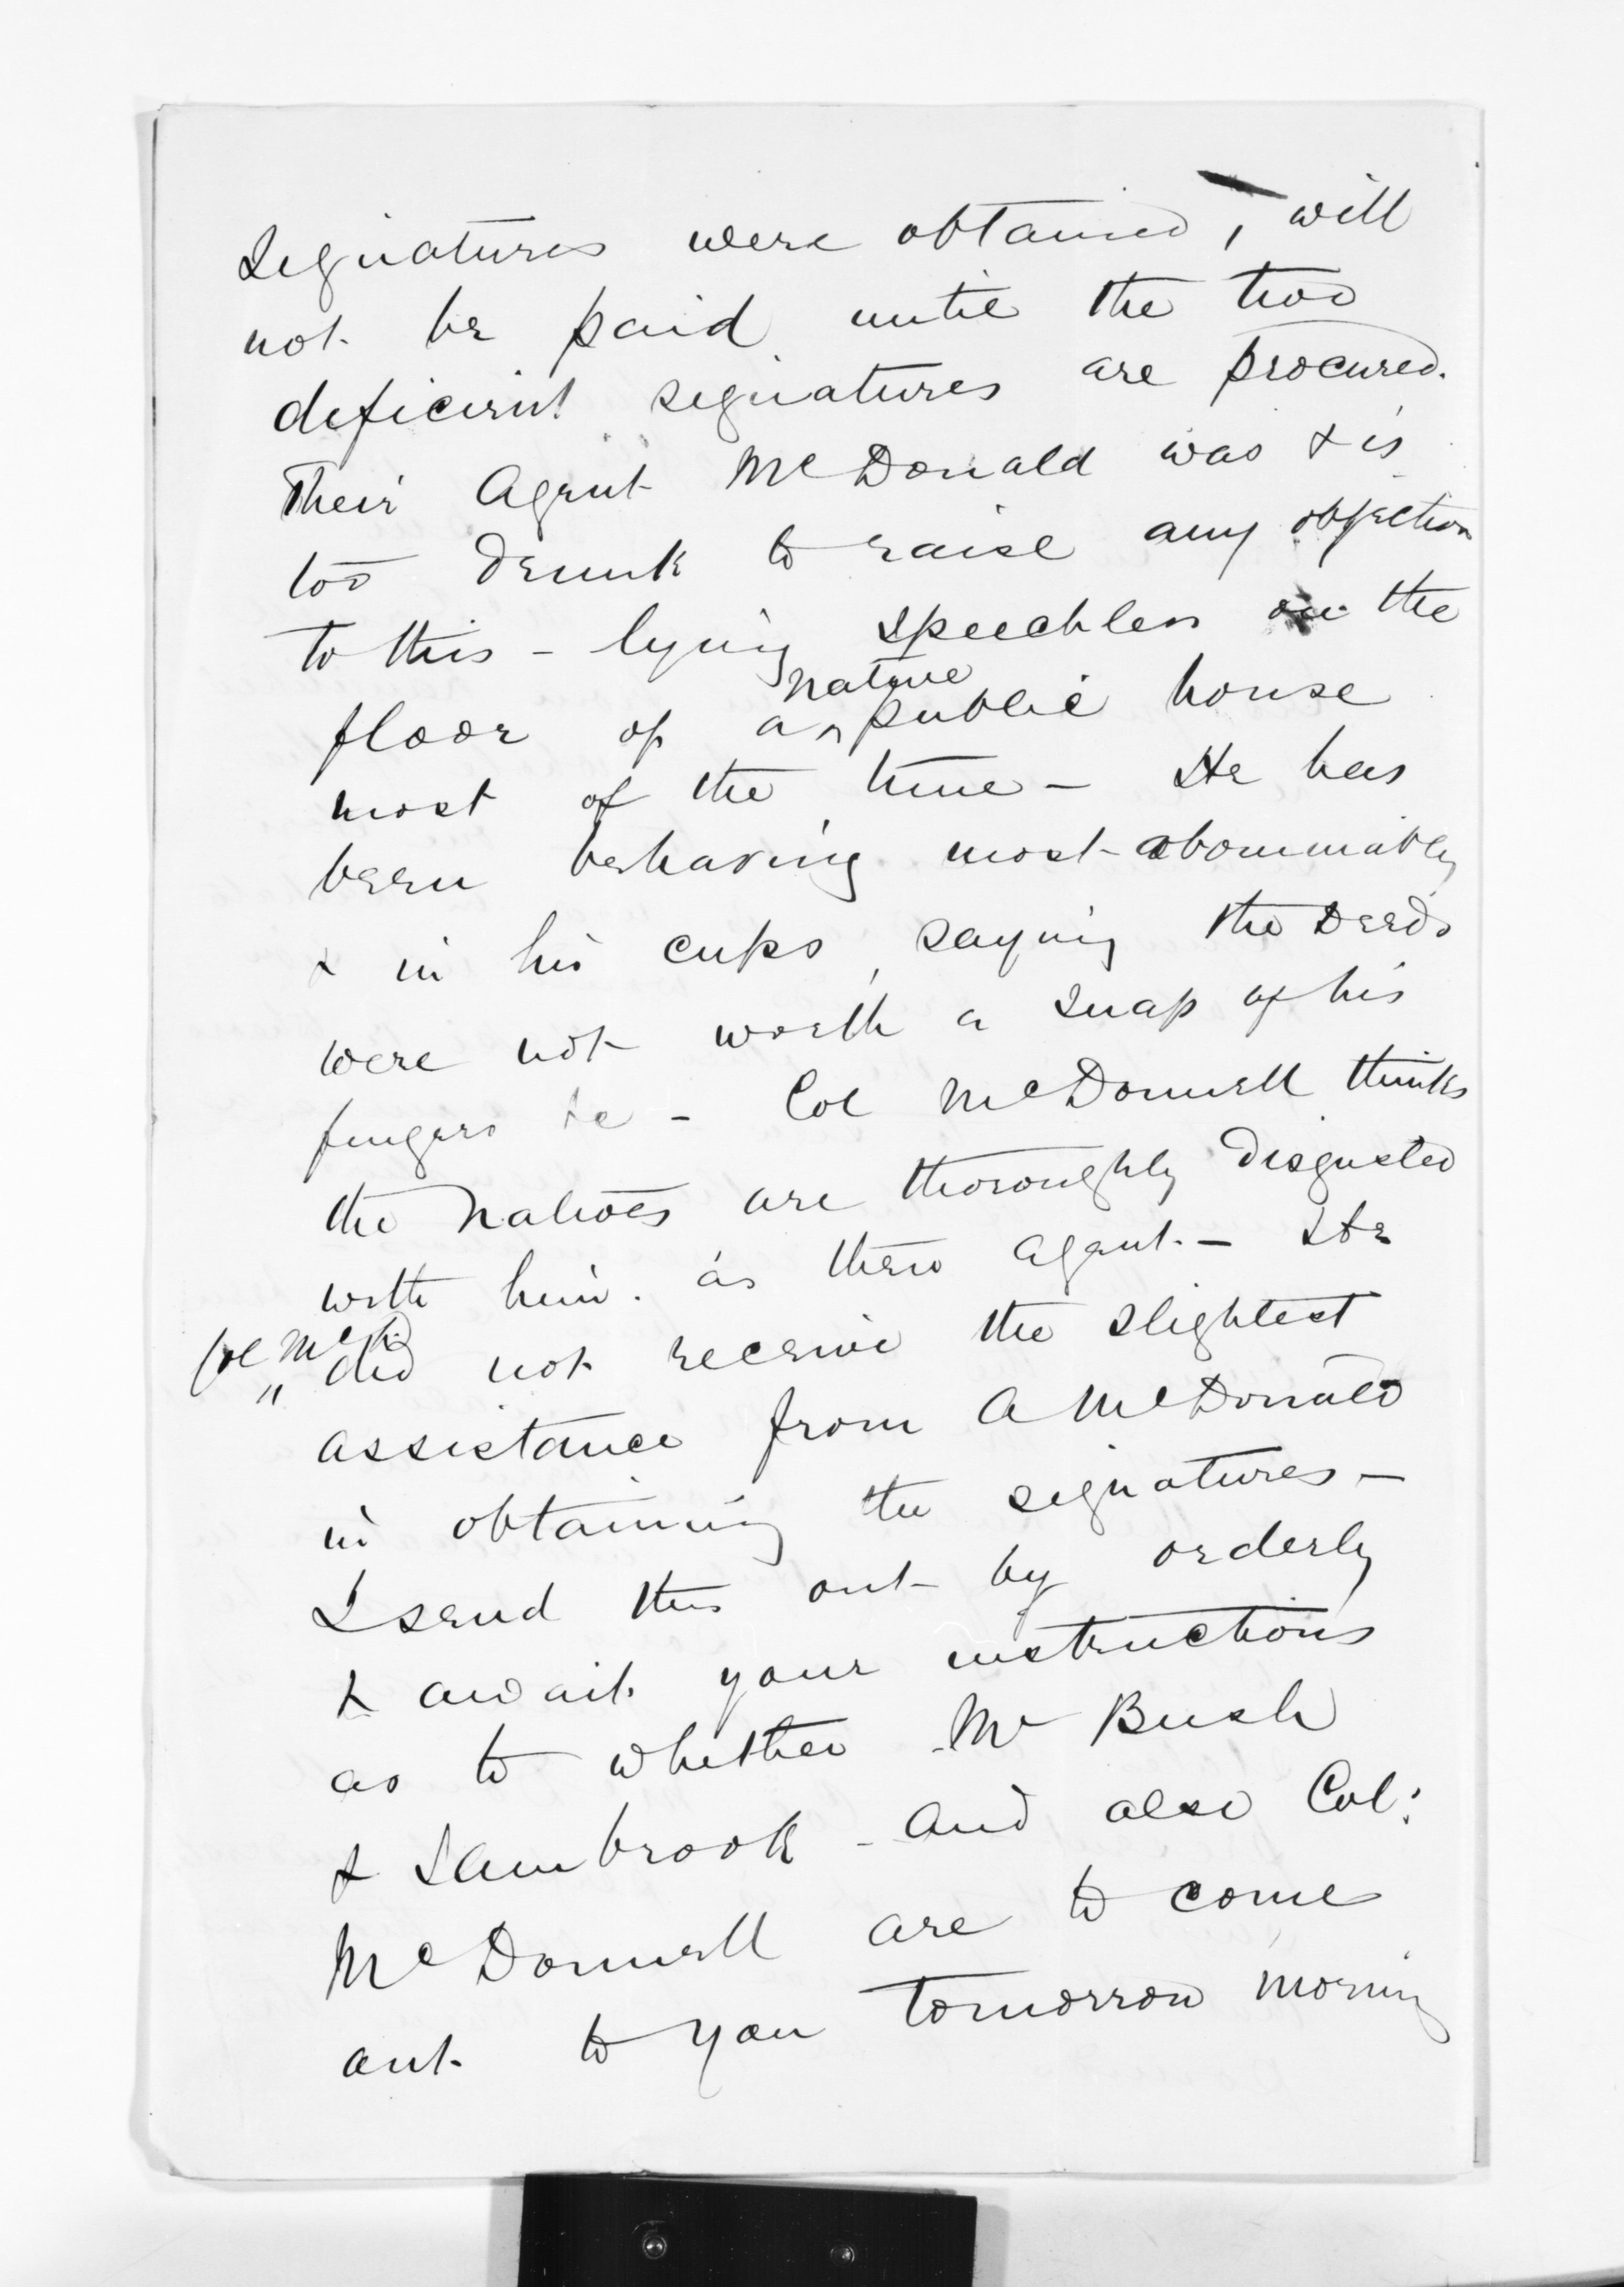 Signatures were obtained, will
not be paid until the two
deficient signatures are procured.
Their Agent McDonald was & is
too drunk to raise any objection
to this - lying speechless on the
native
floor of a public house
most of the time - He has
been behaving most abominably
& in his cups, saying the Deeds
were not worth a snap of his
fingers &c - Col McDonnell thinks
the natives are thoroughly disgusted
with him as their agent. - He
Col McD
did not receive the slightest
assistance from A McDonald
in obtaining the signatures -
I send this out by orderly
& await your instructions
as to whether Mr Bush
& Sambrook - and also Col:
McDonnell are to come
out to you tomorrow morning